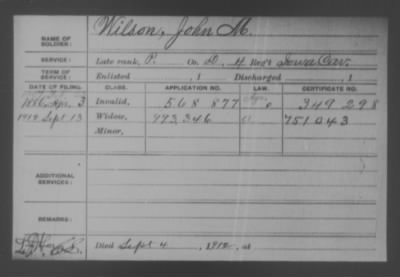 NAME OF SOLDIER: Wilson, John M.
SERVICE: Late rank, P. Co. D, 4 Reg't Iowa Cav.
TERM OF SERVICE: Enlisted , 1 Discharged , 1
DATE OF FILING. CLASS. APPLICATION NO. LAW. CERTIFICATE NO.
3 Invalid, 568 877 349 298
1912 Sept 13 Widow, 993,346 751043
Minor,
ADDITIONAL SERVICES:
REMARKS:
Died Sept 4, 1912, at